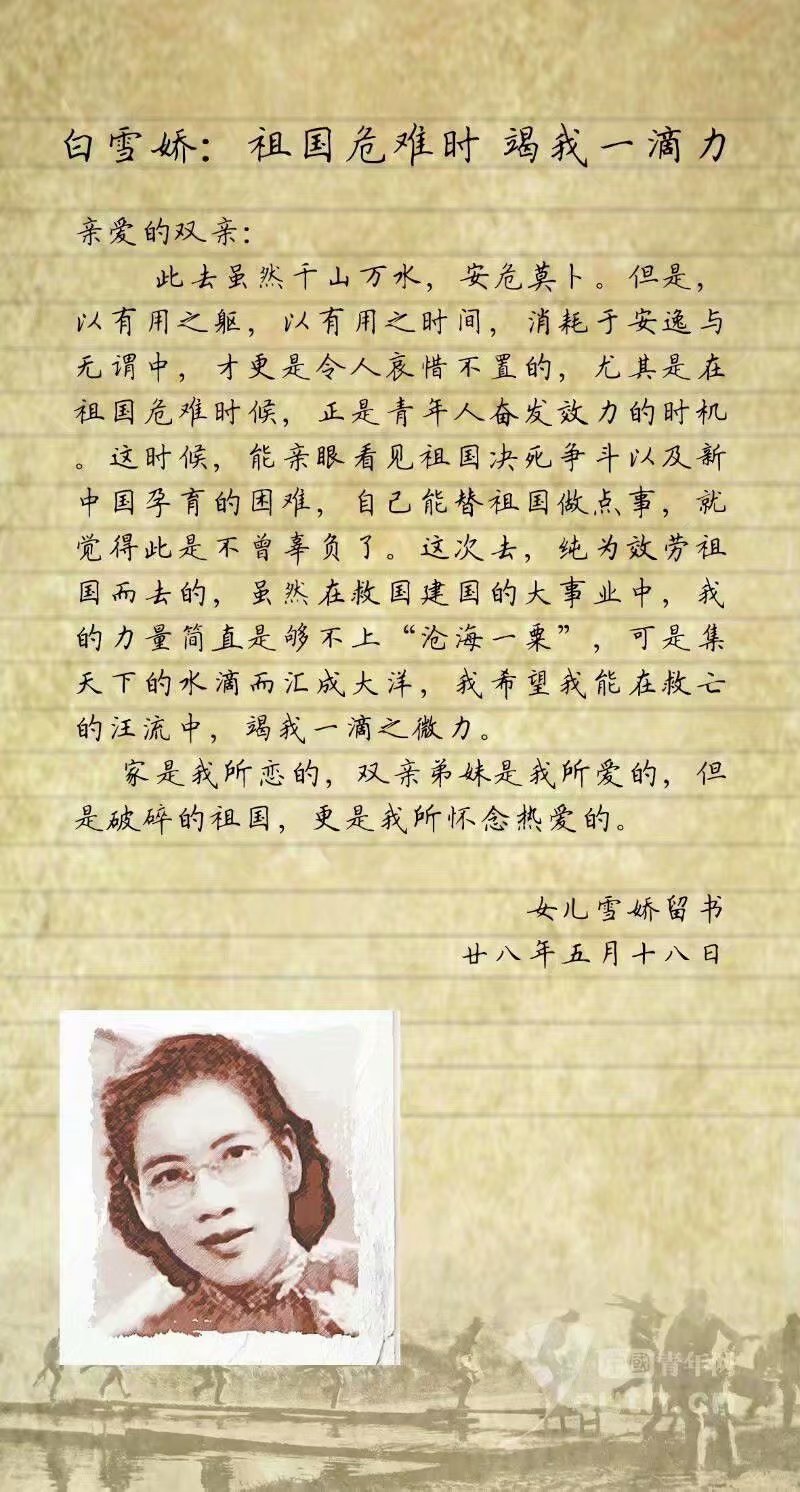 白雪娇：祖国危难时 竭我一滴力
亲爱的双亲：
此去虽然千山万水，安危莫卜。但是，
以有用之躯，以有用之时间，消耗于安逸与
无谓中，才更是令人哀惜不置的，尤其是在
祖国危难时候，正是青年人奋发效力的时机
。这时候，能亲眼看见祖国决死争斗以及新
中国孕育的困难，自己能替祖国做点事，就
觉得此是不曾辜负了。这次去，纯为效劳祖
国而去的，虽然在救国建国的大事业中，我
的力量简直是够不上“沧海一粟”，可是集
天下的水滴而汇成大洋，我希望我能在救亡
的汪流中，竭我一滴之微力。
家是我所恋的，双亲弟妹是我所爱的，但
是破碎的祖国，更是我所怀念热爱的。
女儿雪娇留书
廿八年五月十八日
中國青年网